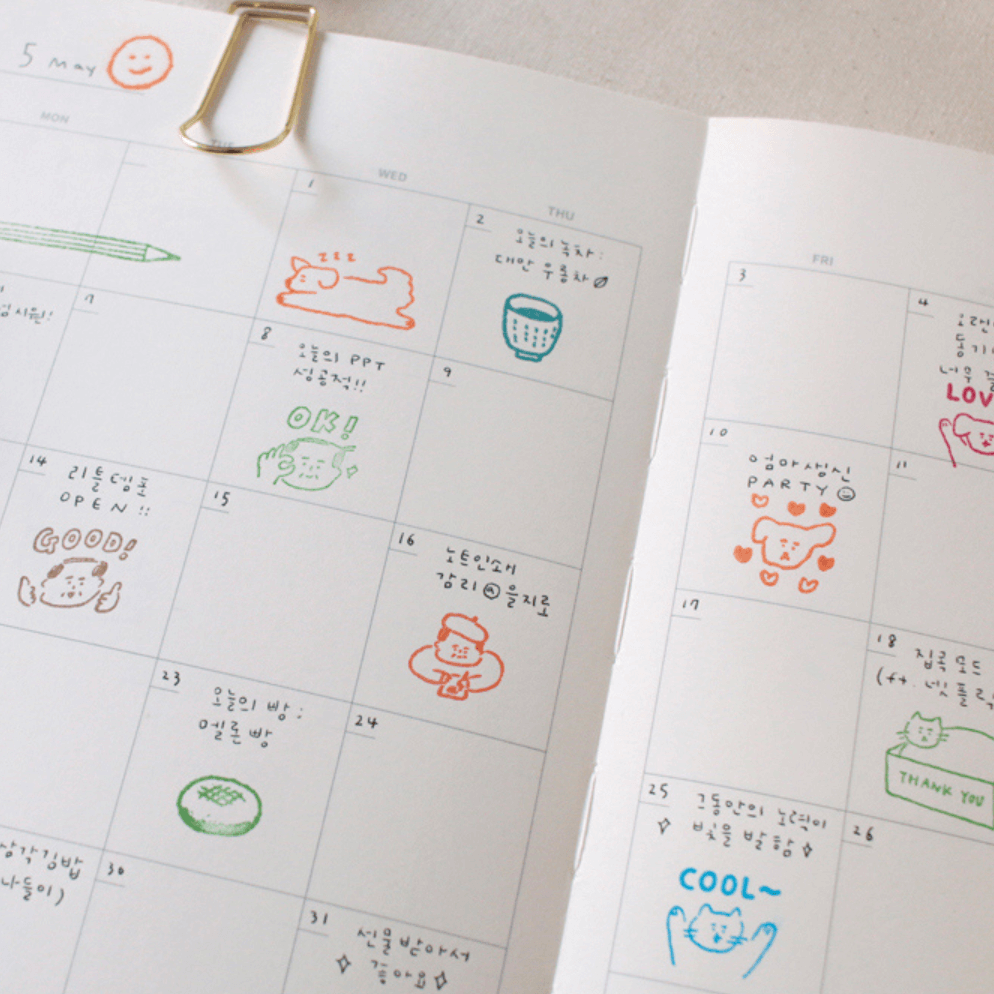 5 May
MON
TUE
WED
THU
FRI
1
zzz
2
오늘의 녹차:
대만 우롱차
3
4
LOV
7
8
오늘의 PPT
성공적!!
OK!
9
10
엄마생신
PARTY
11
14
리틀템포
OPEN !!
GOOD!
15
16
노트인쇄
감리 @ 을지로
17
18
집콕모드
THANK YOU
23
오늘의 빵:
멜론빵
24
25
그동안의 노력이
빛을 발함
COOL~
26
삼각김밥
나들이)
30
31
선물받아서